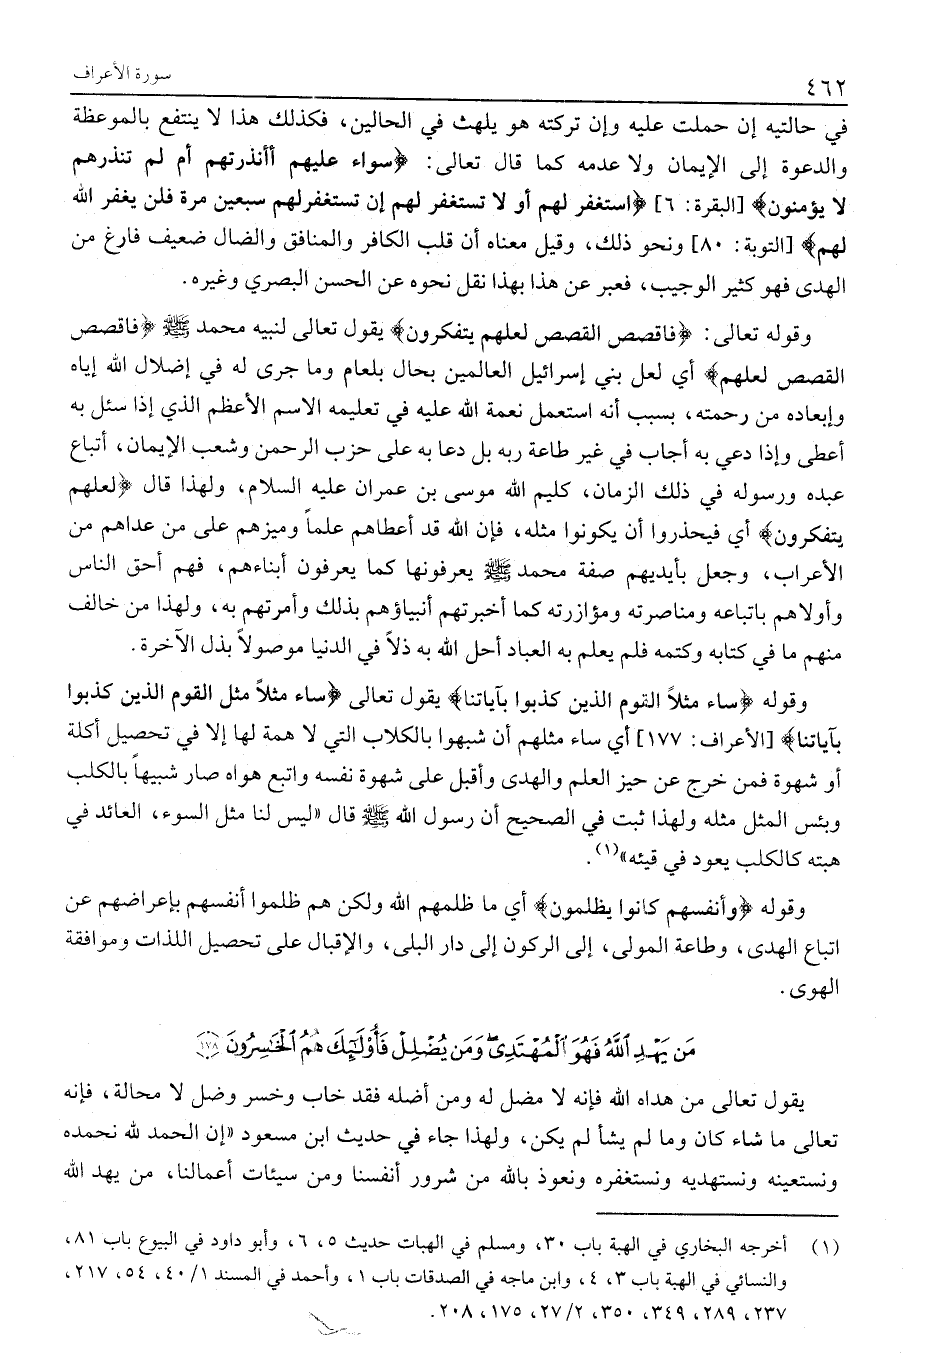 ٤٦٢
سورة الأعراف
في حالتيه إن حملت عليه وإن تركته هو يلهث في الحالين، فكذلك هذا لا ينتفع بالموعظة
والدعوة إلى الإيمان ولا عدمه كما قال تعالى: ﴿سواء عليهم أأنذرتهم أم لم تنذرهم
لا يؤمنون﴾ [البقرة: ٦] ﴿استغفر لهم أو لا تستغفر لهم إن تستغفرلهم سبعين مرة فلن يغفر الله
لهم﴾ [التوبة: ٨٠] ونحو ذلك، وقيل معناه أن قلب الكافر والمنافق والضال ضعيف فارغ من
الهدى فهو كثير الوجيب، فعبر عن هذا بهذا نقل نحوه عن الحسن البصري وغيره.
وقوله تعالى: ﴿فاقصص القصص لعلهم يتفكرون﴾ يقول تعالى لنبيه محمد ﷺ ﴿فاقصص
القصص لعلهم﴾ أي لعل بني إسرائيل العالمين بحال بلعام وما جرى له في إضلال الله إياه
وإبعاده من رحمته، بسبب أنه استعمل نعمة الله عليه في تعليمه الاسم الأعظم الذي إذا سئل به
أعطى وإذا دعي به أجاب في غير طاعة ربه بل دعا به على حزب الرحمن وشعب الإيمان، أتباع
عبده ورسوله في ذلك الزمان، كليم الله موسى بن عمران عليه السلام، ولهذا قال ﴿لعلهم
يتفكرون﴾ أي فيحذروا أن يكونوا مثله، فإن الله قد أعطاهم علماً وميزهم على من عداهم من
الأعراب، وجعل بأيديهم صفة محمد ﷺ يعرفونها كما يعرفون أبناءهم، فهم أحق الناس
وأولاهم باتباعه ومناصرته ومؤازرته كما أخبرتهم أنبياؤهم بذلك وأمرتهم به، ولهذا من خالف
منهم ما في كتابه وكتمه فلم يعلم به العباد أحل الله به ذلاً في الدنيا موصولاً بذل الآخرة.
وقوله ﴿ساء مثلاً القوم الذين كذبوا بآياتنا﴾ يقول تعالى ﴿ساء مثلاً مثل القوم الذين كذبوا
بآياتنا﴾ [الأعراف: ١٧٧] أي ساء مثلهم أن شبهوا بالكلاب التي لا همة لها إلا في تحصيل أكلة
أو شهوة فمن خرج عن حيز العلم والهدى وأقبل على شهوة نفسه واتبع هواه صار شبيهاً بالكلب
وبئس المثل مثله ولهذا ثبت في الصحيح أن رسول الله ﷺ قال «ليس لنا مثل السوء، العائد في
هبته كالكلب يعود في قيئه»(١).
وقوله ﴿وأنفسهم كانوا يظلمون﴾ أي ما ظلمهم الله ولكن هم ظلموا أنفسهم بإعراضهم عن
اتباع الهدى، وطاعة المولى، إلى الركون إلى دار البلى، والإقبال على تحصيل اللذات وموافقة
الهوى.
مَن يَهْدِ ٱللَّهُ فَهُوَ ٱلْمُهْتَدِى وَمَن يُضْلِلْ فَأُوْلَٰٓئِكَ هُمُ ٱلْخَٰسِرُونَ ١٧٨
يقول تعالى من هداه الله فإنه لا مضل له ومن أضله فقد خاب وخسر وضل لا محالة، فإنه
تعالى ما شاء كان وما لم يشأ لم يكن، ولهذا جاء في حديث ابن مسعود «إن الحمد لله نحمده
ونستعينه ونستهديه ونستغفره ونعوذ بالله من شرور أنفسنا ومن سيئات أعمالنا، من يهد الله
(١) أخرجه البخاري في الهبة باب ٣٠، ومسلم في الهبات حديث ٥، ٦، وأبو داود في البيوع باب ٨١،
والنسائي في الهبة باب ٣، ٤، وابن ماجه في الصدقات باب ١، وأحمد في المسند ١/ ٤٠، ٥٤، ٢١٧،
٢٣٧، ٢٨٩، ٣٤٩، ٣٥٠، ٢/ ٢٧، ١٧٥، ٢٠٨.